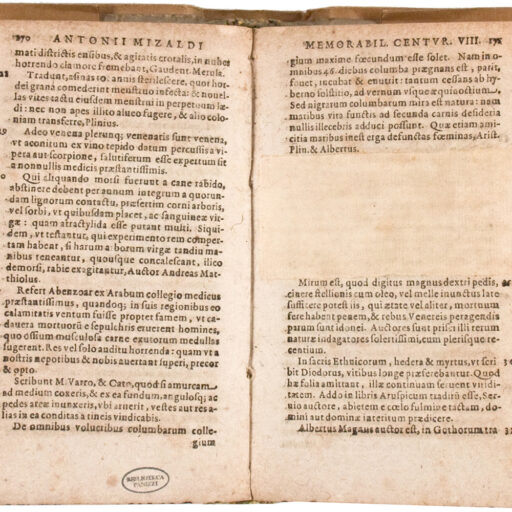 270 ANTONII MIZALDI
mati districtis ensibus, & agitatis crotalis, in nubes
horrendo clamore fremebant, Gaudent. Merula.
Tradunt, si asina tot annis sterilescere, quot hor
dei grana comederint menstruo infecta: & novel
las vites tactu eiusdem menstrui in perpetuum læ
di: nec non apes illito alueo fugere, & alio colo
niam transferre, Plinius.
Adeo venena plerunq; venenatis sunt venena,
vt aconitum ex vino tepido datum percussis a vi
pera aut scorpione, salutiferum esse expertum sit
a nonnullis medicis præstantissimis.
Qui aliquando morsi fuerunt a cane rabido,
abstinere debent per annum integrum a quorun
dam lignorum contactu, præsertim corni arboris,
vel sorbi, vt quibusdam placet, ac sanguineæ vir
gæ: quam atractylida esse putant multi. Siqui
dem, vt testantur, qui experimento rem comper
tam habent, si harum a borum virgæ tandiu ma
nibus teneantur, quousque concalescant, illico
demorsi, rabie exagitantur, Auctor Andreas Mat
thiolus.
Refert Abenzoar ex Arabum collegio medicus
præstantissimus, quandoq; in suis regionibus eo
calamitatis ventum fuisse propter famem, vt ca
dauera mortuorũ e sepulchris eruerent homines,
quo ossium musculosa carne exutorum medullas
sugerent. Res vel solo auditu horrenda: quam vt a
nostris nepotibus & nobis auertant superi, precor
& opto.
Scribunt M. Varro, & Cato, quod si amurcam
ad medium coxeris, & ex ea fundum, angulosq; ac
pedes arcæ inunxeris, vbi aruerit, vestes aut res a
lias in ea conditas a tineis vindicabis.
De omnibus volucribus columbarum colle-
gium
BIBLIOTECA
PANIZZI
MEMORABIL. CENTVR. VIII.
gium maxime fœcundum esse solet. Nam in o
mnibus 46. diebus columba prægnans est, parit,
fouet, incubat & enutrit: tantum cessans ab hy
berno solstitio, ad vernum vsque æquinoctium.
Sed nigrarum columbarum mira est natura: nam
maribus vita functis ad secunda carnis desideria
nullis illecebris adduci possunt. Quæ etiam ami
citia maribus inest erga defunctas fœminas, Arist.
Plin. & Albertus.
Mirum est, quod digitus magnus dextri pedis,
cinere stellionis cum oleo, vel melle inunctus late
sufficere potest iis, qui ætate vel aliter, mortuum
fere habent penem, & rebus Venereis peragendis
parum sunt idonei. Auctores sunt prisci illi rerum
naturæ indagatores solertissimi, cum plerisque re
centium.
In sacris Ethnicorum, hedera & myrtus, vt scri
bit Diodorus, vitibus longe præferebantur. Quod
hæ folia amittant, illæ continuam seruent viridi
tatem. Addo in libris Aruspicum traditũ esse, Ser-
uio auctore, abietem e cœlo fulmine tactam, do
mini aut dominæ interitum prædicere.
Albertus Magnus auctor est, in Gothorum tra 32